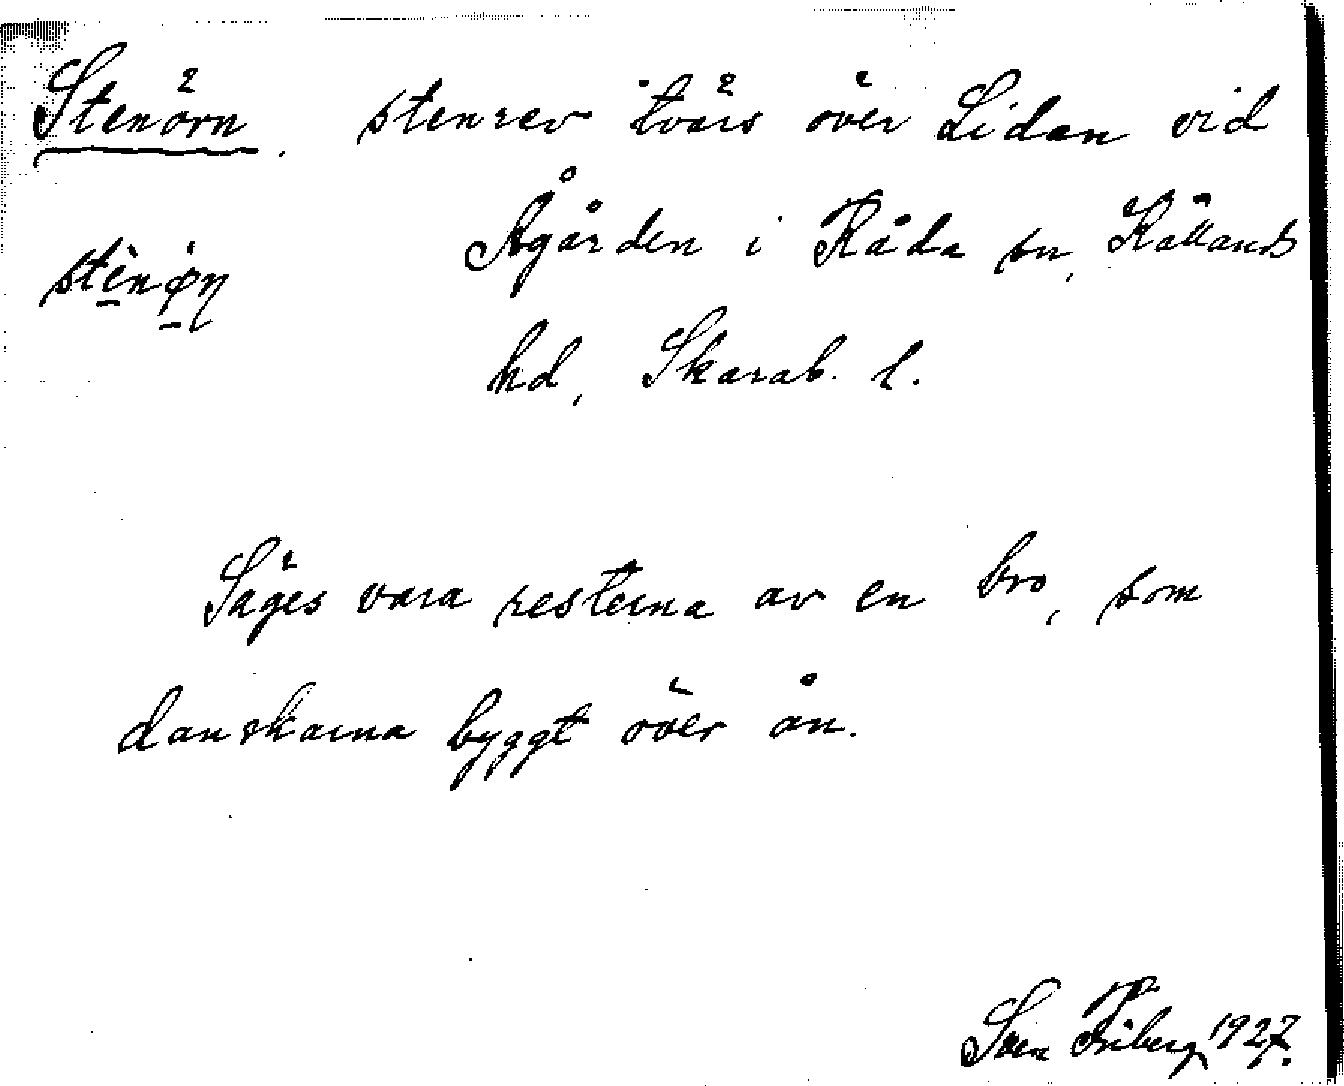 Stenörn, stenrev tvärs över Lidan vid
Ågården i Råda sn, Kållands
stenøn
hd, Skarab. l.
Säges vara resterna av en bro, som
danskarna byggt över ån.
Sven Friberg 1927.